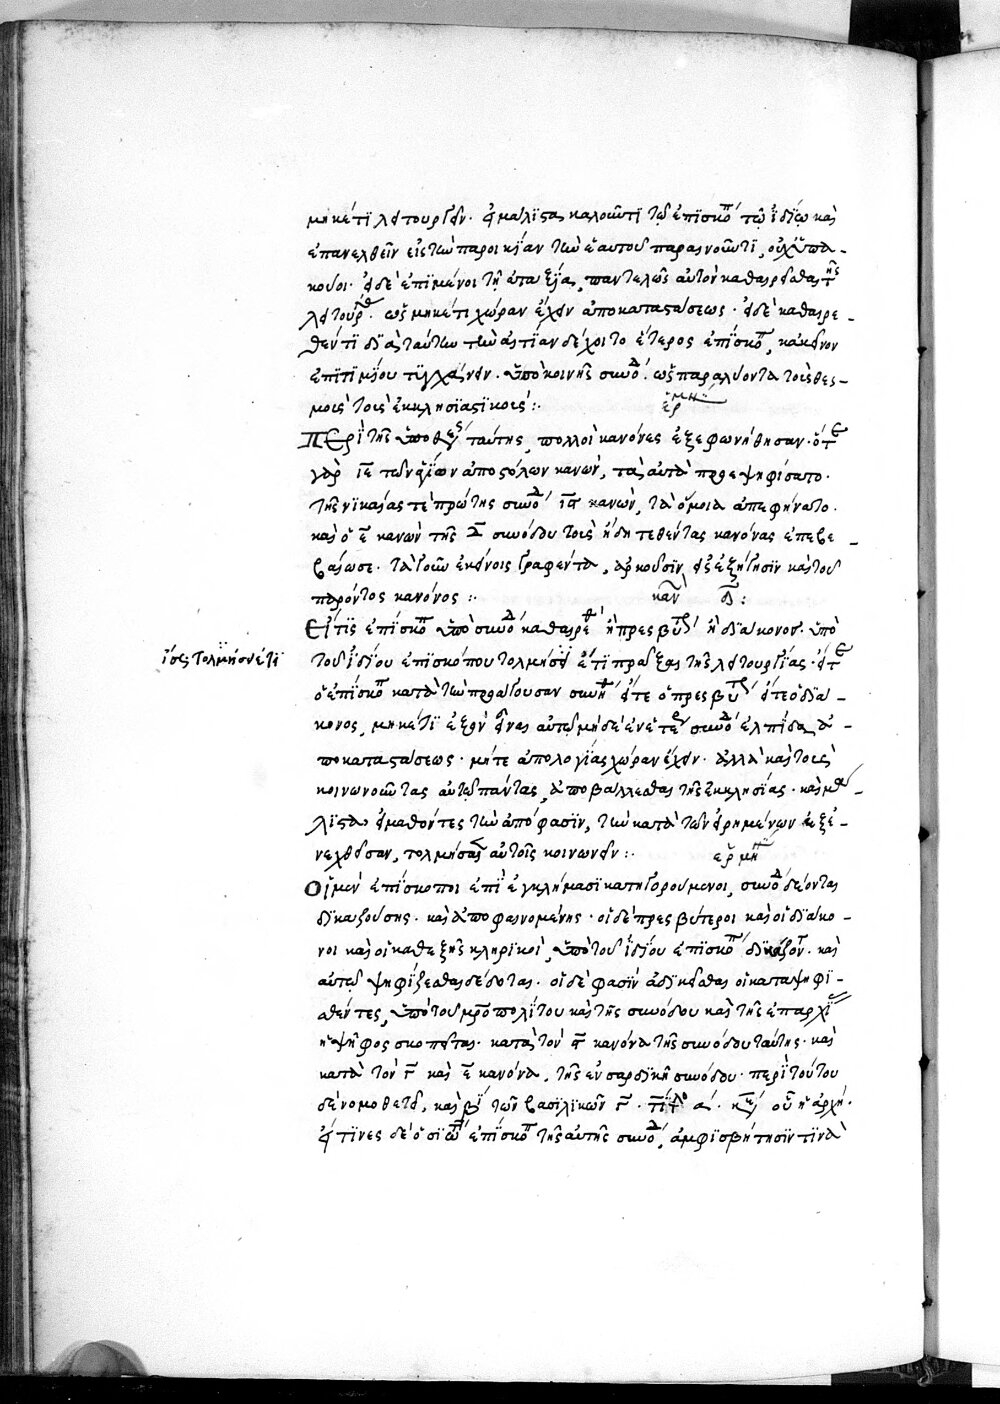 μηκέτι λειτουργεῖν. εἰ μάλιστα καλοῦντι τῷ ἐπισκό(π) τῷ ἰδίῳ καὶ
ἐπανελθεῖν εἰς τὴν παροικίαν τὴν ἑαυτοῦ παραινοῦντι, οὐχ ὑπα-
κούοι. εἰ δὲ ἐπιμένοι τῇ ἀταξίᾳ, παντελῶς αὐτὸν καθαιρεῖσθαι τῆς
λειτουρ. ὡς μηκέτι χώραν ἔχειν ἀποκαταστάσεως. εἰ δὲ καθαιρε-
θέντι διὰ ταύτην τὴν αἰτίαν δέχοιτο ἕτερος ἐπίσκο(π), κἀκεῖνον
ἐπιτιμίου τυγχάνειν. ὑπὸ κοινῆς συνό(δ). ὡς παραλύοντα τοὺς θεσ-
μοὺς τοὺς ἐκκλησιαστικούς:
ἑρμη
Περὶ τῆς ὑποθέσ ταύτης, πολλοὶ κανόνες ἐξεφωνήθησαν. ὅτε
γὰρ ιε τῶν ἁγίων ἀποστόλων κανών, τὰ αὐτὰ προεψηφίσατο.
τῆς νικαίας τὲ πρώτης συνό(δ) ις κανών, τὰ ὅμοια ἀπεφήνατο.
καὶ ὁ ε κανὼν τῆς Δ συνόδου τοὺς ἤδη τεθέντας κανόνας ἐπεβε-
βαίωσε. τὰ γοῦν ἐκείνοις γραφέντα, ἀρκοῦσιν εἰς ἐξήγησιν καὶ τοῦ
παρόντος κανόνος:
καν δ:
Εἴτις ἐπίσκο(π) ὑπὸ συνό(δ) καθαιρε(θ) ἢ πρεσβύ(τ) ἢ διάκονος. ὑπὸ
τοῦ ἰδίου ἐπισκόπου τολμήσει ἔτι πρᾶξαι τῆς λειτουργίας. εἴτε
ἴσως τολμήσειέ τι
ὁ ἐπίσκο(π) κατὰ τὴν προάγουσαν συνή(θ) εἴτε ὁ πρεσβύ(τ) εἴτε ὁ διά-
κονος, μηκέτι ἐξὸν εἶναι αὐτῷ μηδὲ ἐν ἑτέρ συνό(δ) ἐλπίδα ἀ-
ποκαταστάσεως. μήτε ἀπολογίας χώραν ἔχειν. ἀλλὰ καὶ τοὺς
κοινωνοῦντας αὐτῷ πάντας, ἀποβάλλεσθαι τῆς ἐκκλησίας. καὶ μά-
λιστα εἰ μαθόντες τὴν ἀπόφασιν, τὴν κατὰ τῶν εἰρημένων ἐξε-
νεχθεῖσαν, τολμήσαι αὐτοῖς κοινωνεῖν:
ἑρμη
Οἱ μὲν ἐπίσκοποι ἐπὶ ἐγκλήμασι κατηγορούμενοι, συνό(δ) δέονται
δικαζούσης. καὶ ἀποφαινομένης. οἱ δὲ πρεσβύτεροι καὶ οἱ διάκο-
νοι καὶ οἱ καθεξῆς κληρικοί, ὑπὸ τοῦ ἰδίου ἐπισκό(π) δικάζον(τ). καὶ
αὐτῷ ψηφίζεσθαι δέδοται. οἱ δὲ φασὶν ἀδικεῖσθαι οἱ καταψηφι-
σθέντες, ὑπὸ τοῦ μροπολίτου καὶ τῆς συνόδου καὶ τῆς ἐπαρχί
ἡ ψῆφος σκοπεῖται. κατὰ τὸν ς κανόνα τῆς συνόδου ταύτης. καὶ
κατὰ τὸν γ καὶ ε κανόνα, τῆς ἐν σαρδικῇ συνόδου. περὶ τούτου
δὲ νομοθετεῖ, καὶ βι τῶν βασιλικῶν γ. τίτλο α. κε οὗ ἡ ἀρχή.
εἴτινες δὲ ὁσιω ἐπίσκο(π) τῆς αὐτῆς συνό(δ), ἀμφισβήτησιν τινὰ